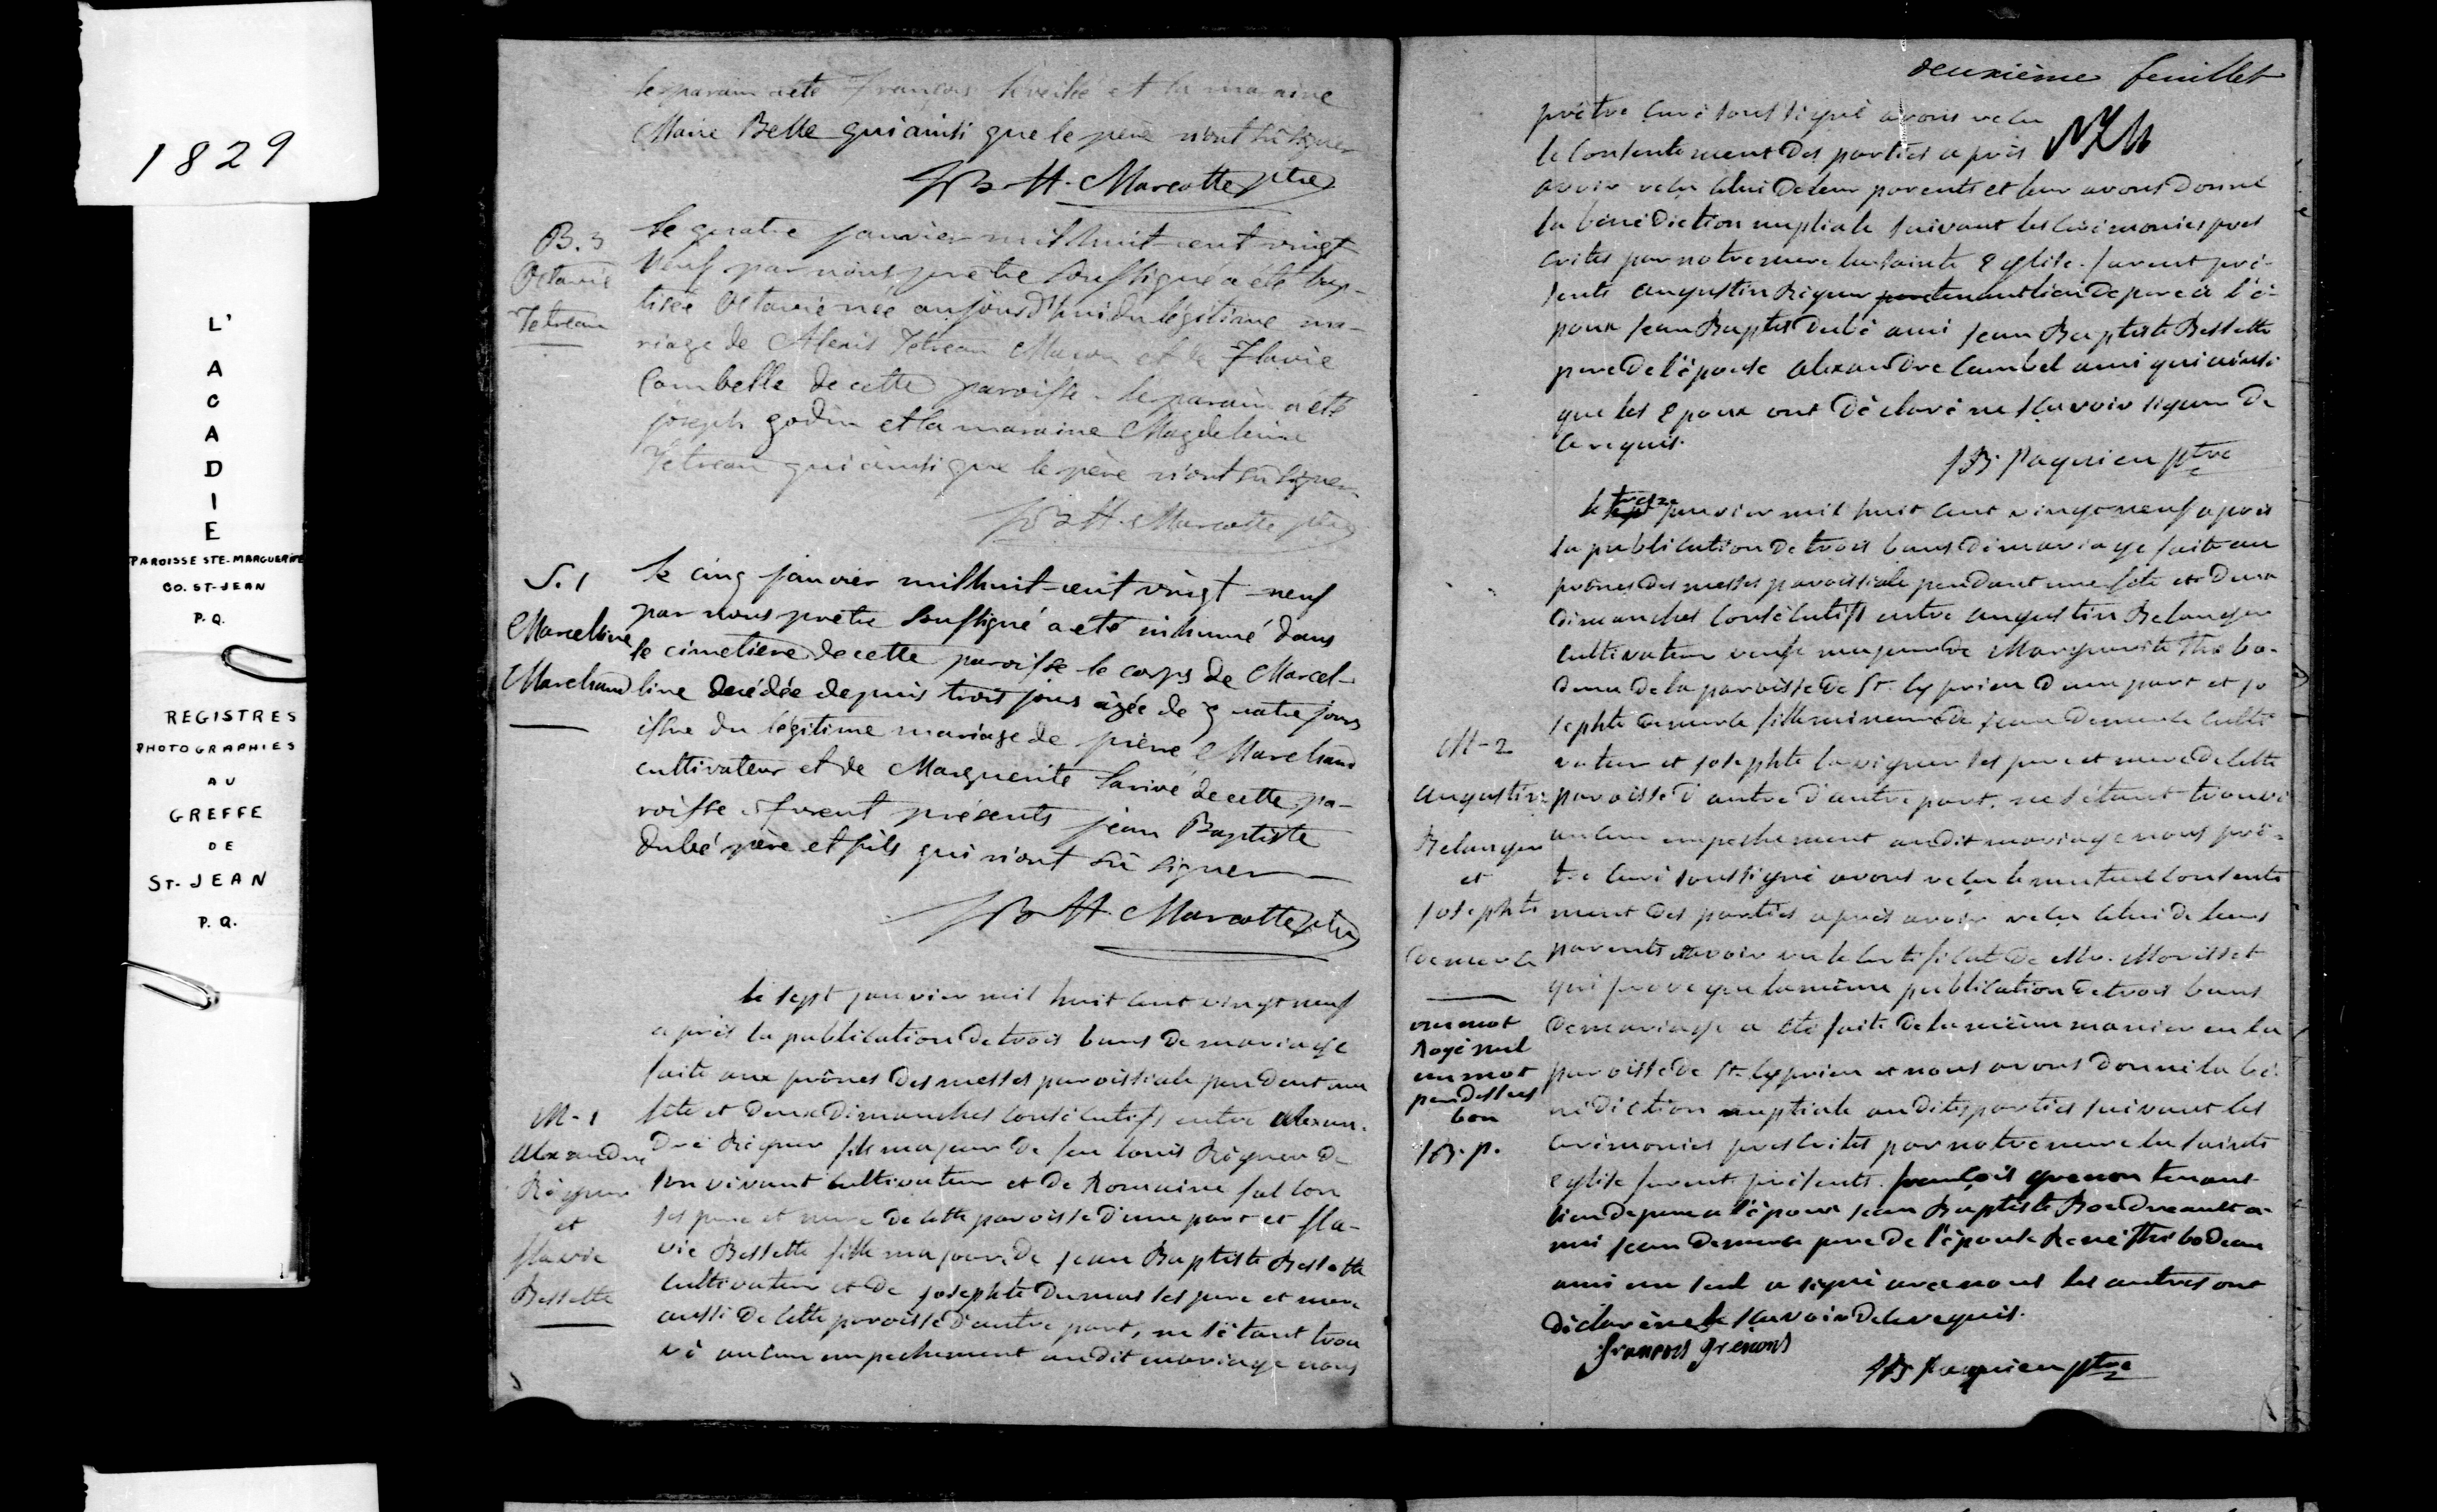 1829
L'
A
C
A
D
I
E
PAROISSE STE-MARGUERITE
CO. ST-JEAN
P.Q.
REGISTRES
PHOTOGRAPHIES
AU
GREFFE
DE
ST-JEAN
P.Q.
le parain a été François léveillé et la maraine
Marie Belle qui ainsi que le père n'ont sû signer
JB H. Marcotte ptre
B.3
Octavie
Tetreau
le quatre janvier mil huit-cent vingt
neuf par nous prêtre soussigné a été bap-
tisée Octavie née aujourd'hui du légitime ma-
riage de Alexis Tetreau Maçon et de Flavie
Combelle de cette paroisse. le parain a été
joseph godin et la maraine Magdeleine
Tetreau qui ainsi que le père n'ont sû signer
JB H. Marcotte ptre
S.1
Marcelline
Marchand
le cinq janvier mil huit-cent vingt-neuf
par nous prêtre soussigné a été inhumé dans
le cimetière de cette paroisse le corps de Marcel-
line décédée depuis trois jours agée de quatre jours
issue du légitime mariage de pierre Marchand
cultivateur et de Marguerite Larivé de cette pa-
roisse. furent présents jean Baptiste
dubé père et fils qui n'ont sû signer
JB H. Marcotte ptre
M-1
Alexandre
Régner
et
flavie
Bessette
le sept janvier mil huit cent vingt neuf
après la publication de trois bans de mariage
faite aux prônes des messes paroissiale pendant une
fête et deux dimanches consécutifs entre alexan-
dre Régner fils majeur de feu louis Régner de
son vivant cultivateur et de Romaine fallon
ses pere et mere de cette paroisse d'une part et fla-
vie Bessette fille majeure de jean Baptiste Bessette
cultivateur et de josephte Dumas ses pere et mere
aussi de cette paroisse d'autre part, ne s'étant trou
vé aucun empechement audit mariage nous
deuxième feuillet
prêtre curé soussigné avons reçu
le consentement des parties après
avoir reçu celui de leur parents et leur avons donné
la bénédiction nuptiale suivant les cérémonies pres
crites par notre mere la sainte Eglise. furent pré-
sents augustin Régner tenant lieu de pere à l'é-
poux jean Baptis dubé ami jean Baptiste Bessette
pere de l'épouse alexandre Cambel ami qui ainsi
que les epoux ont déclaré ne sçavoir signer de
ce requis.
JB Paquien ptre
M-2
augustin
Belanger
et
josephte
Demerse
un mot
rayé nul
un mot
pardessus
bon
JB. P.
le treize janvier mil huit cent vingt neuf après
la publication de trois bans de mariage faite au
prônes des messes paroissiale pendant une fête et deux
dimanches consécutifs entre augustin Belanger
cultivateur veuf majeur de Marguerite Thibo-
deau de la paroisse de St. Cyprien d'une part et jo
sephte demerse fille mineure de jean demerse culti
vateur et josephte lavigueur ses pere et mere de cette
paroisse d'autre d'autre part. ne s'étant trouvé
aucun empechement audit mariage nous prê-
tre curé soussigné avons reçu le mutuel consente
ment des parties après avoir reçu celui de leurs
parents et avoir vu le certificat de Mr. Morisset
qui prouve que la même publication de trois bans
de mariage a été faite de la même maniere en la
paroisse de St. Cyprien et nous avons donné la bé-
nédiction nuptiale audites parties suivant les
cérémonies prescrites par notre mere la sainte
eglise furent présents. françois grenon tenant
lieu de pere a l'époux jean Baptiste Boudreault a-
mi jean demerse pere de l'épouse René Thibodeau
ami un seul a signé avec nous les autres ont
déclaré ne le sçavoir de ce requis.
francois grenons
JB Paquien ptre